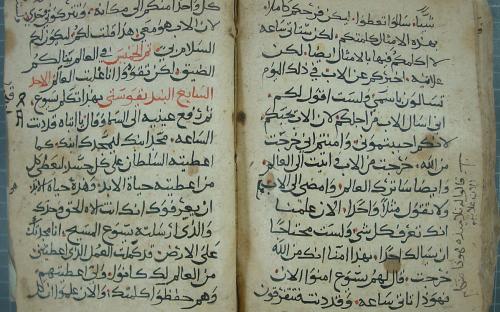 شيئا. سالوا تعطوا. ليكن فرحكم كاملا.
بهذه الامثال كلمتكم. ولكن ستاتي ساعه
لا اكلمكم فيها بالامثال ايضا. لكن
علانيه. اخبركم عن الاب. في ذلك اليوم
تسالون باسمي ولست اقول لكم
اني اسال الاب من اجلكم لان الاب يحبكم
لانكم احببتموني. وامنتم اني خرجت
من الله. خرجت من الاب. اتيت الى العالم
وايضا ساترك العالم. وامضي الى الاب
ولا تقول مثلا واحدا. الان علمنا
انك تعرف كل شي وليس محتاجا
ان يسالك احدا. بهذا امنا انك من الله
خرجت. قال لهم يسوع امنوا الان
فهوذا تاتي ساعه. وقد دنت فتتفرقون
كل واحد منكم الى مكانه. وتتركوني وحدي
لان الاب هو معي هذا قلت لكم ليكون لكم
السلام بي في العالم ينالكم
الضيق. لكن تقووا انا غلبت العالم الاحد
السابع البنديقوستي بهذا تكلم يسوع.
ثم رفع عينيه الى السما وقال يا ابتاه قد دنت
الساعه. مجد ابنك ليمجدك ابنك كما
اعطيته السلطان على كل جسد ليعطي كل
من اعطيته حياة الابد. وهذه حياة الابد
ان يعرفوك انك انت الاه الحق وحدك
والذي ارسلته يسوع المسيح. انا مجدتك
على الارض. قد كملت العمل الذي اعطيتني
من العالم لك كانوا. ولي اعطيتهم
وهم حفظوا كلمتك. والان علموا ان كل